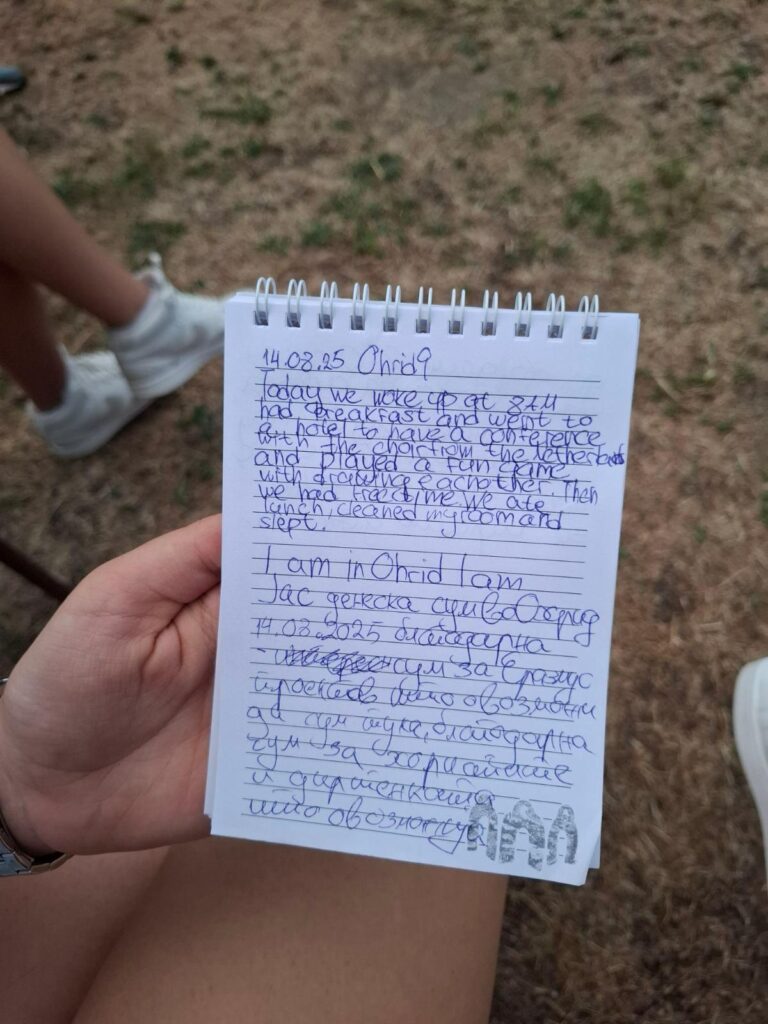 14.08.25 Ohrid9
Today we woke up at 8AM
had breakfast and went to
a hotel to have a conference
with the choir from the Netherlands
and played a fun game
with drawing eachother. Then
we had freetime we ate
lunch, cleaned my room and
slept.
I am in Ohrid I am
Јас денеска сум во Охрид
14.08.2025 благодарна
сум за Еразмус
што овозможи
да сум тука, благодарна
сум за
и
што овозможија